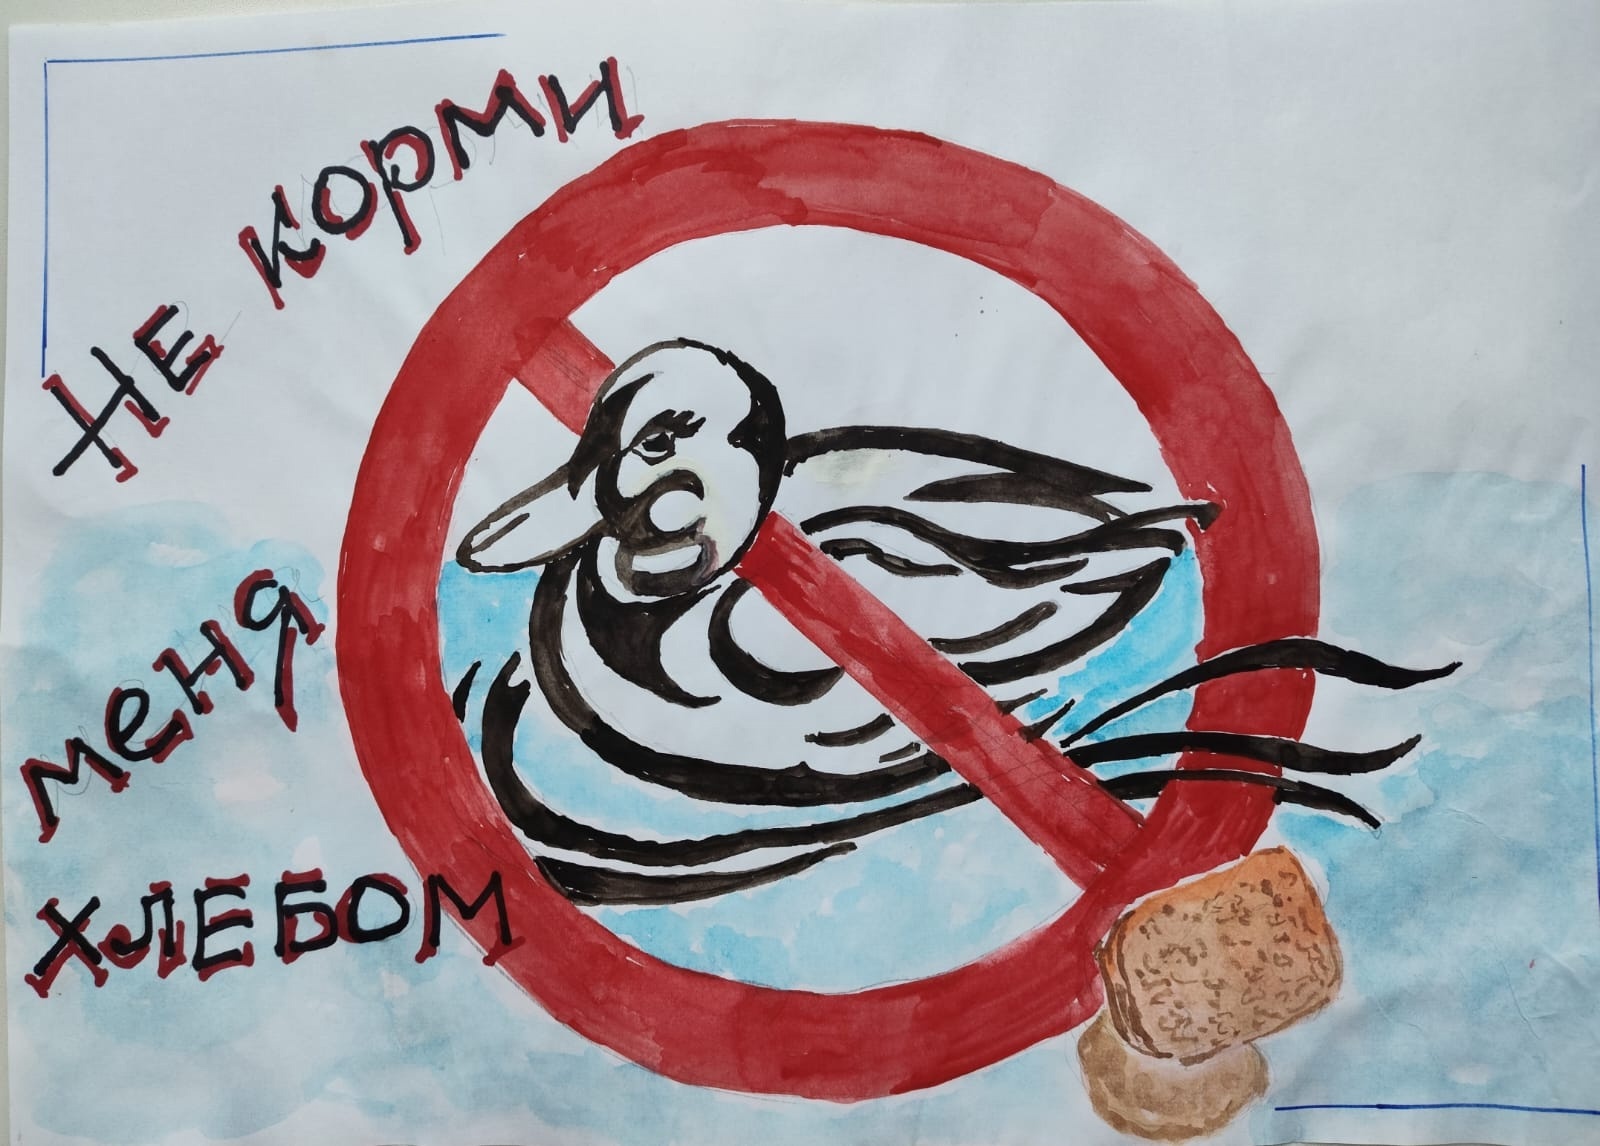 Не корми
меня
хлебом